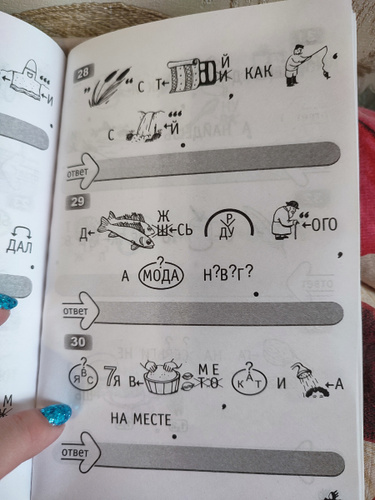 И
28
" С Т Й И КАК
С Й
ответ
29
ДАЛ
Д Ж Ш СЬ Р ДУ ОГО,
А МОДА ? Н?В?Г?.
ответ
30
Я В С ? 7Я В МЕ ТО К А Т ? И А
М
НА МЕСТЕ.
ответ